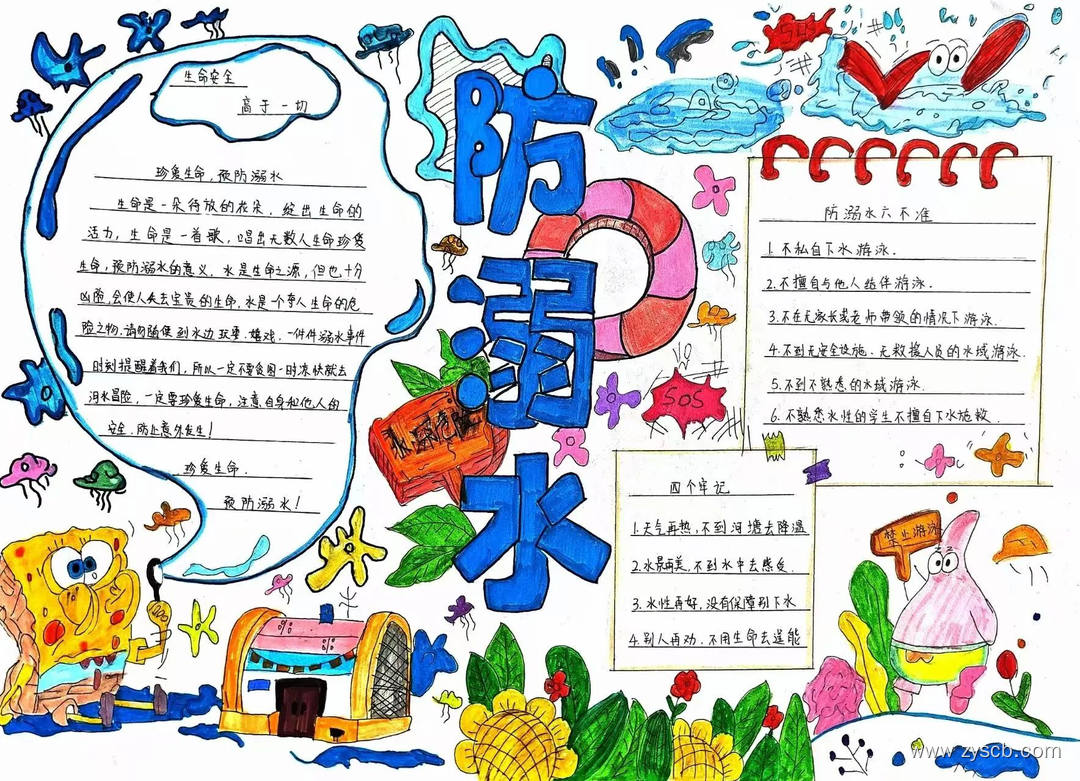 生命安全
高于一切
珍爱生命，预防溺水
生命是一朵待放的花朵，绽出生命的
活力，生命是一首歌，唱出无数人生命珍贵
生命，预防溺水的意义，水是生命之源，但也十分
凶险，会使人失去宝贵的生命，水是一个夺人生命的危
险之物，请勿随便到水边玩耍、嬉戏，一件件溺水事件
时刻提醒着我们，所以一定不要贪图一时凉快就去
河水冒险，一定要珍爱生命，注意自身和他人的
安全，防止意外发生！
珍爱生命，
预防溺水！
防溺水
水深危险
SOS
SOS
防溺水六不准
1.不私自下水游泳．
2.不擅自与他人结伴游泳．
3.不在无家长或老师带领的情况下游泳．
4.不到无安全设施、无救援人员的水域游泳．
5.不到不熟悉的水域游泳．
6.不熟悉水性的学生不擅自下水施救．
四个牢记
1.天气再热，不到河塘去降温
2.水景再美，不到水中去感受．
3.水性再好，没有保障别下水
4.别人再劝，不用生命去逞能
禁止游泳
www.zyscb.com